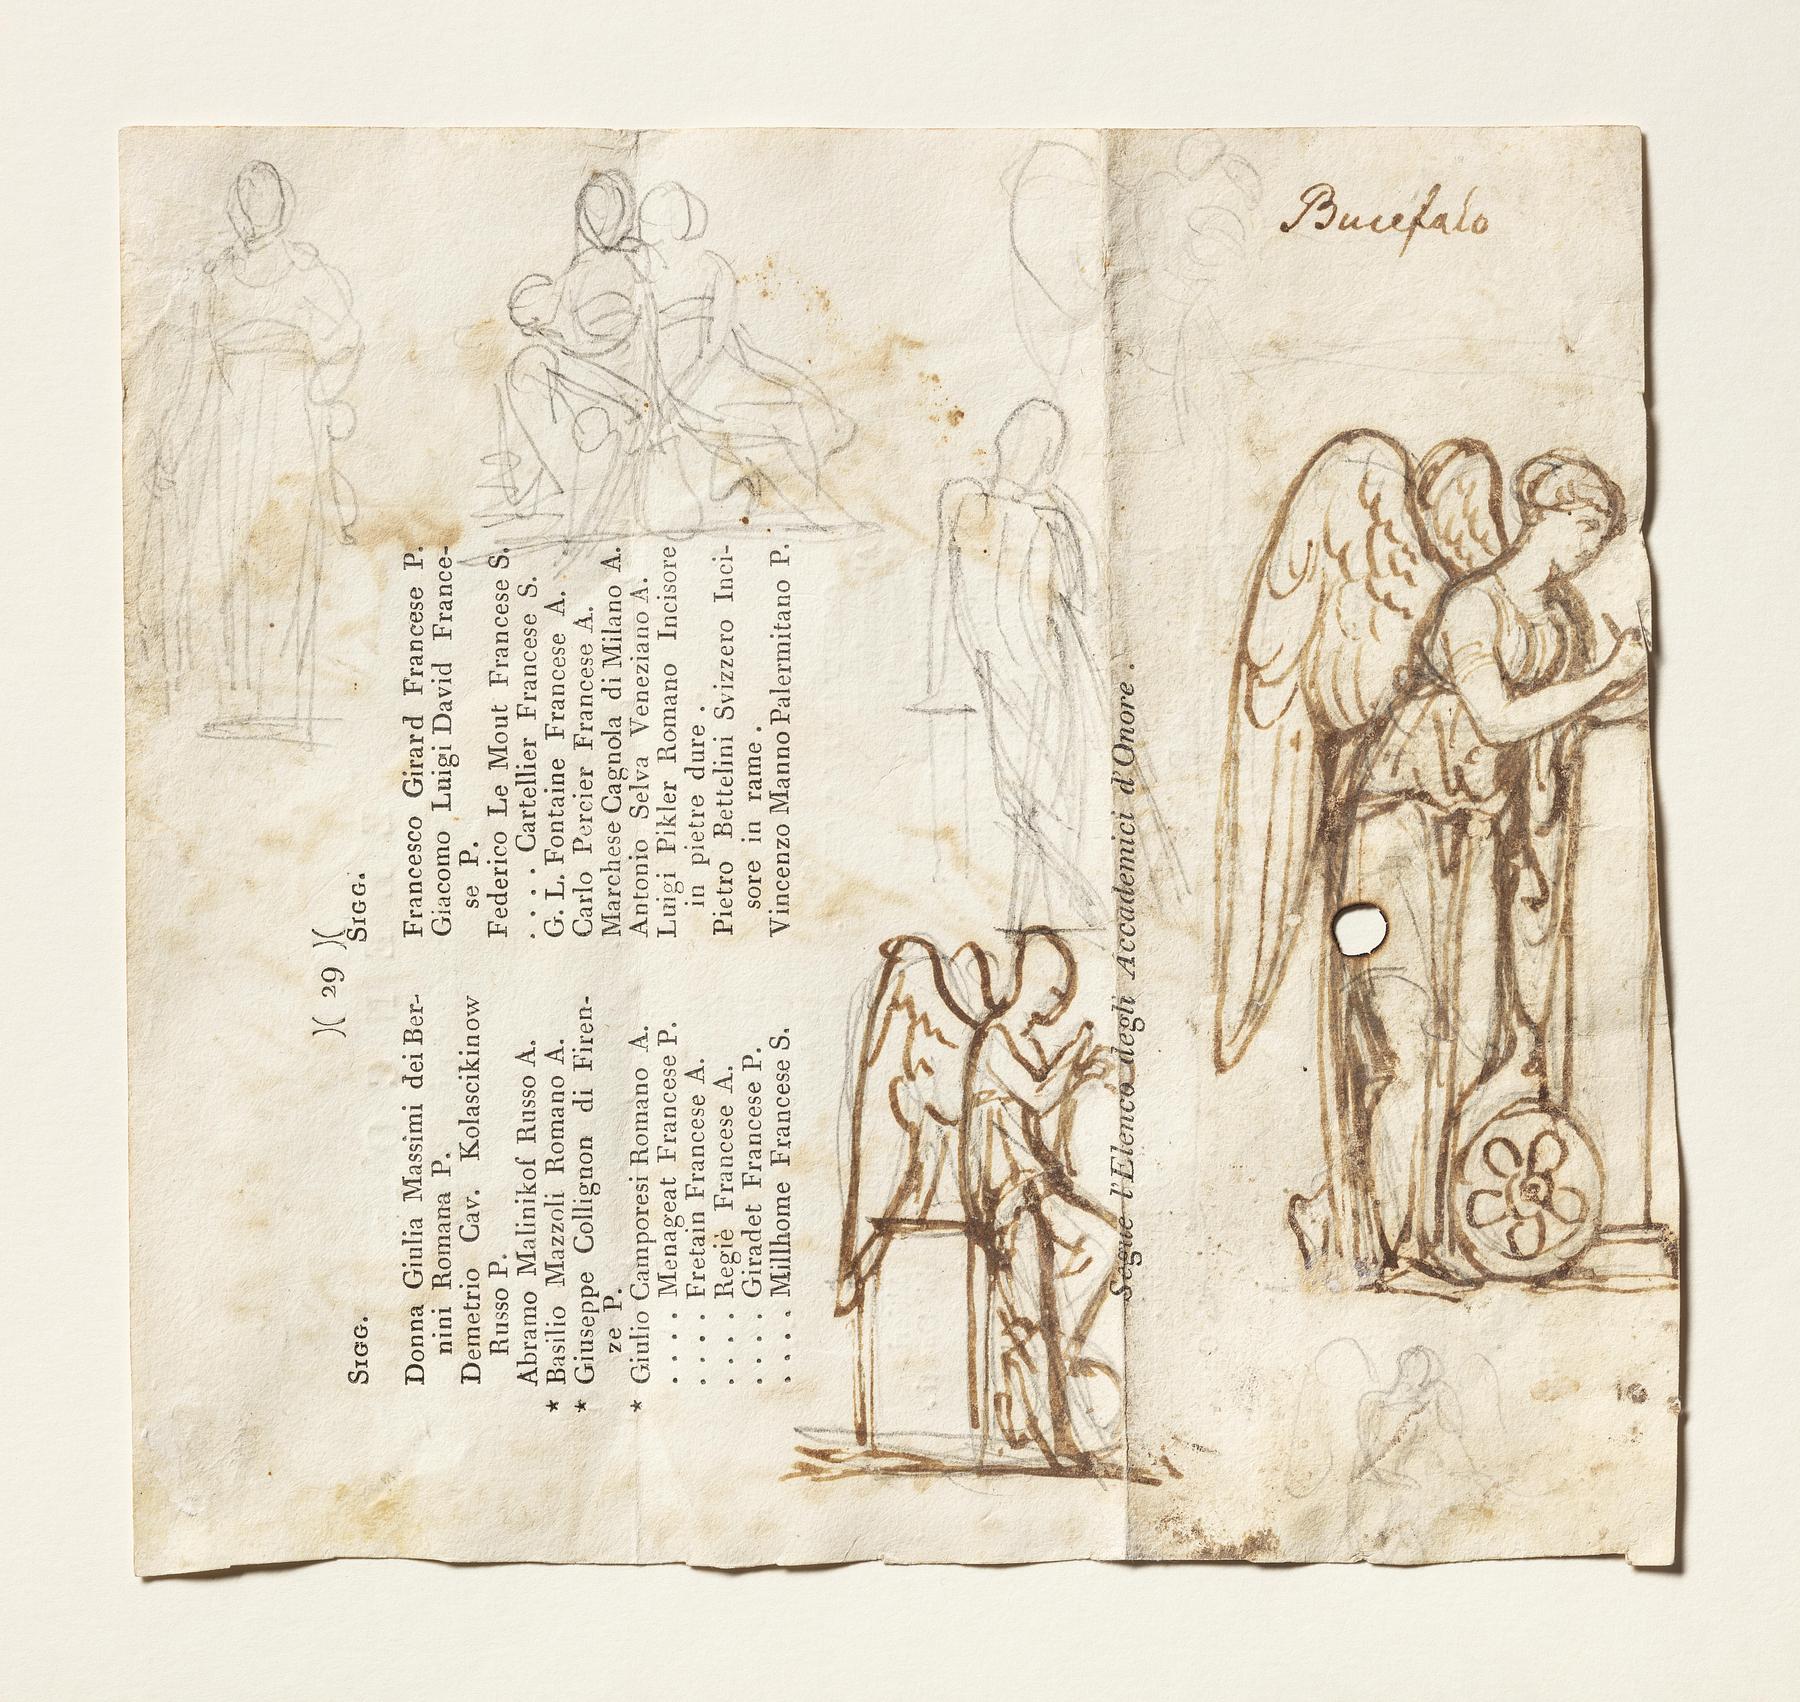 Bucefalo
)( 29 )(
SIGG.
Donna Giulia Massimi dei Ber-
nini Romana P.
Demetrio Cav. Kolascikinow
Russo P.
Abramo Malinikof Russo A.
* Basilio Mazzoli Romano A.
* Giuseppe Collignon di Firen-
ze P.
* Giulio Camporesi Romano A.
. . . . Menageat Francese P.
. . . . Fretain Francese A.
. . . . Regiè Francese A.
. . . . Giradet Francese P.
. . . . Millhome Francese S.
SIGG.
Francesco Girard Francese P.
Giacomo Luigi David France-
se P.
Federico Le Mout Francese S.
. . . . Cartellier Francese S.
G. L. Fontaine Francese A.
Carlo Percier Francese A.
Marchese Cagnola di Milano A.
Antonio Selva Veneziano A.
Luigi Pikler Romano Incisore
in pietre dure .
Pietro Bettelini Svizzero Inci-
sore in rame .
Vincenzo Manno Palermitano P.
Segue l'Elenco degli Accademici d'Onore .